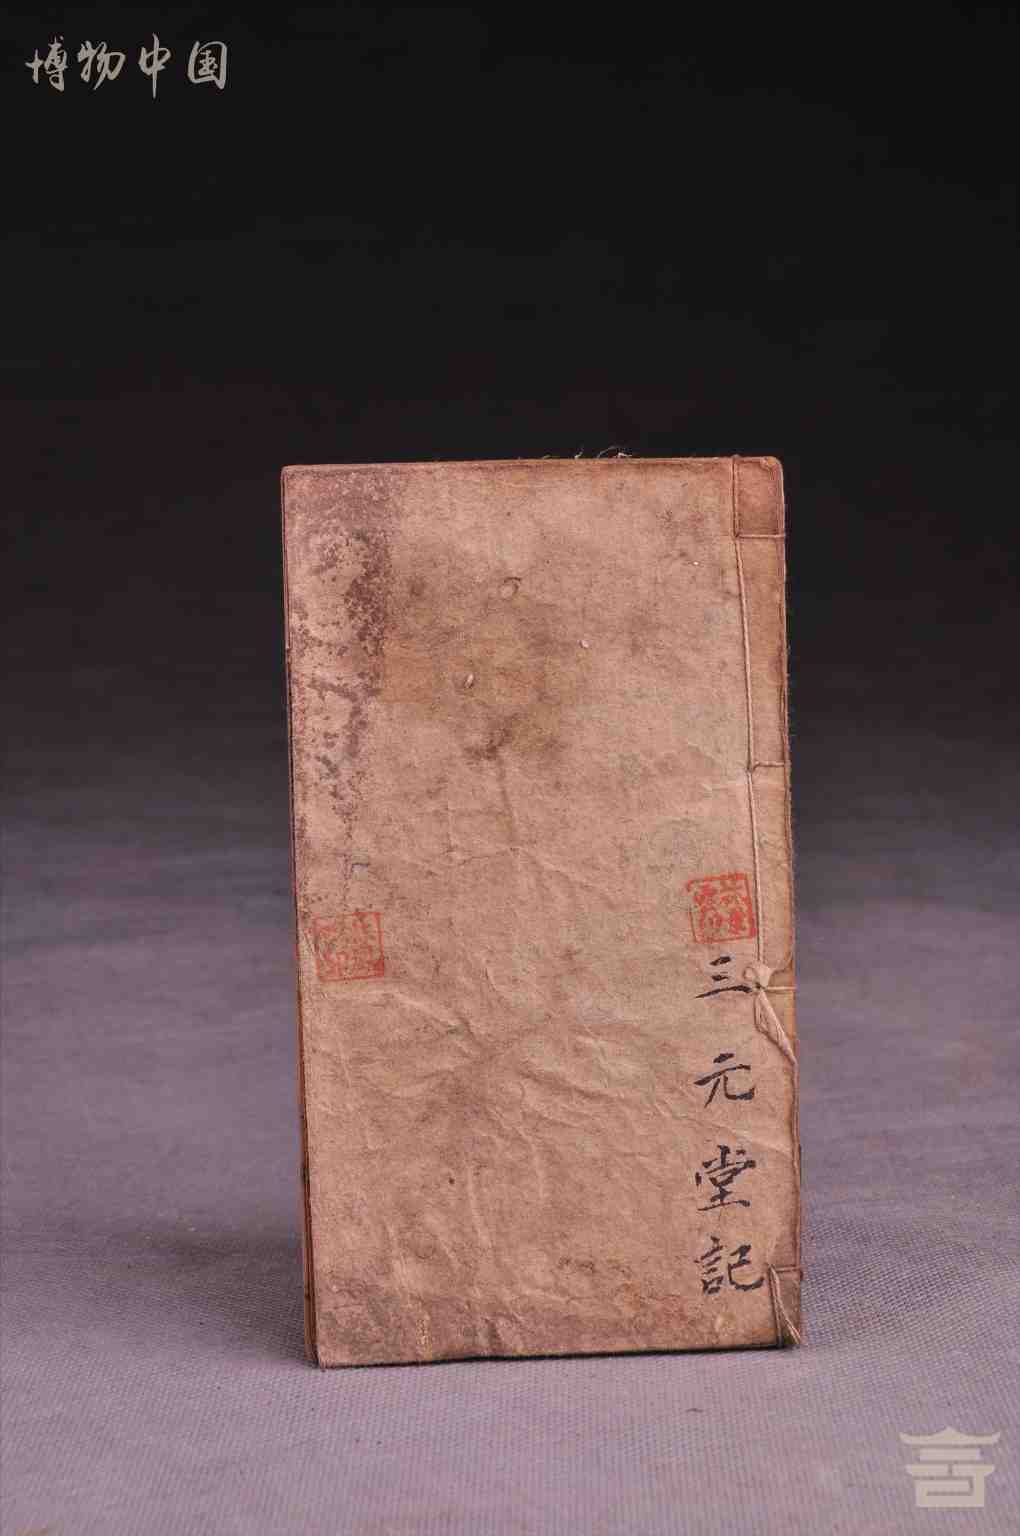 博物中国
三元堂記